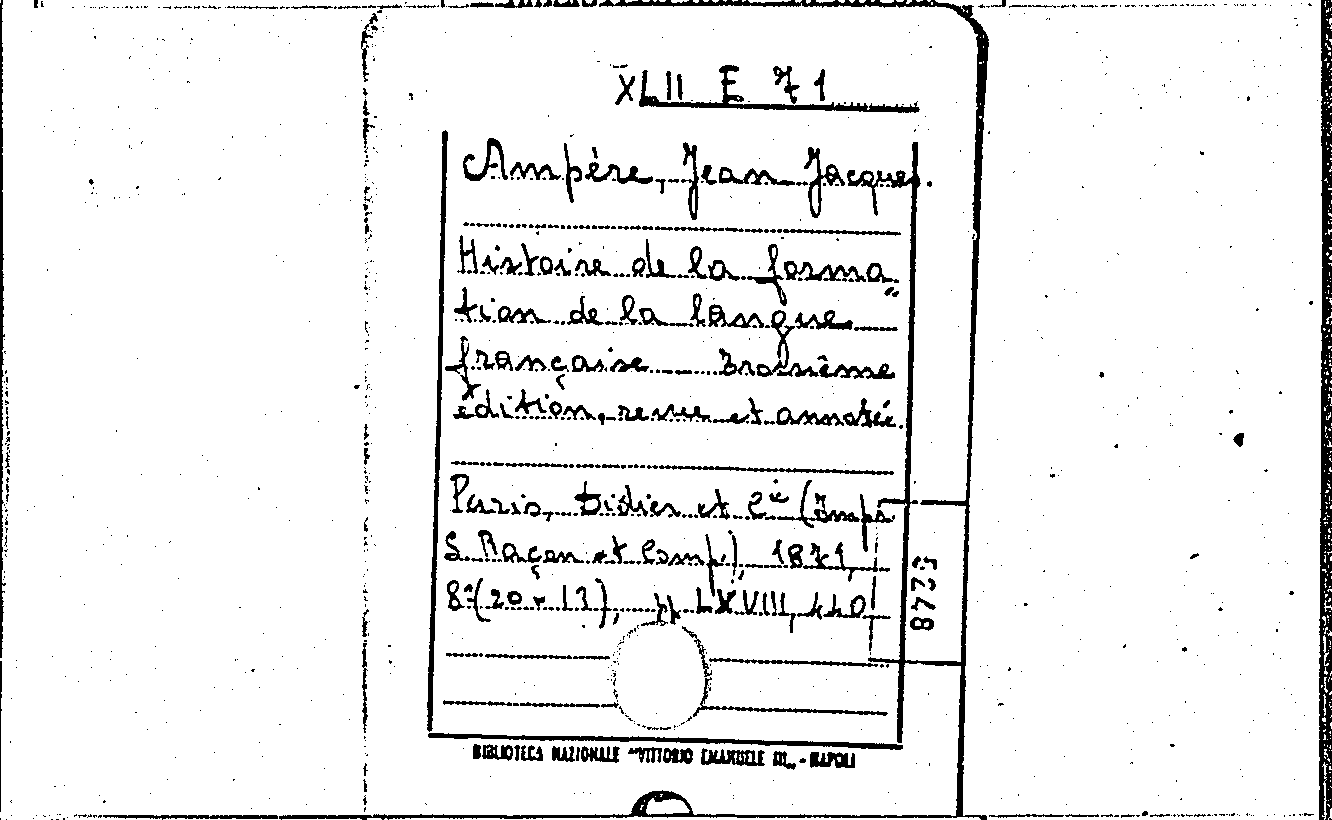 XLII E 71
Ampère, Jean Jacques.
Histoire de la forma„
tion de la langue
française Troisième
édition, revue et annotée.
Paris, Didier et Cie (Impr
S. Raçon et Comp.), 1871,
8º (20 × 13), pp LXVIII, 440
5248
BIBLIOTECA NAZIONALE "VITTORIO EMANUELE III„ - NAPOLI